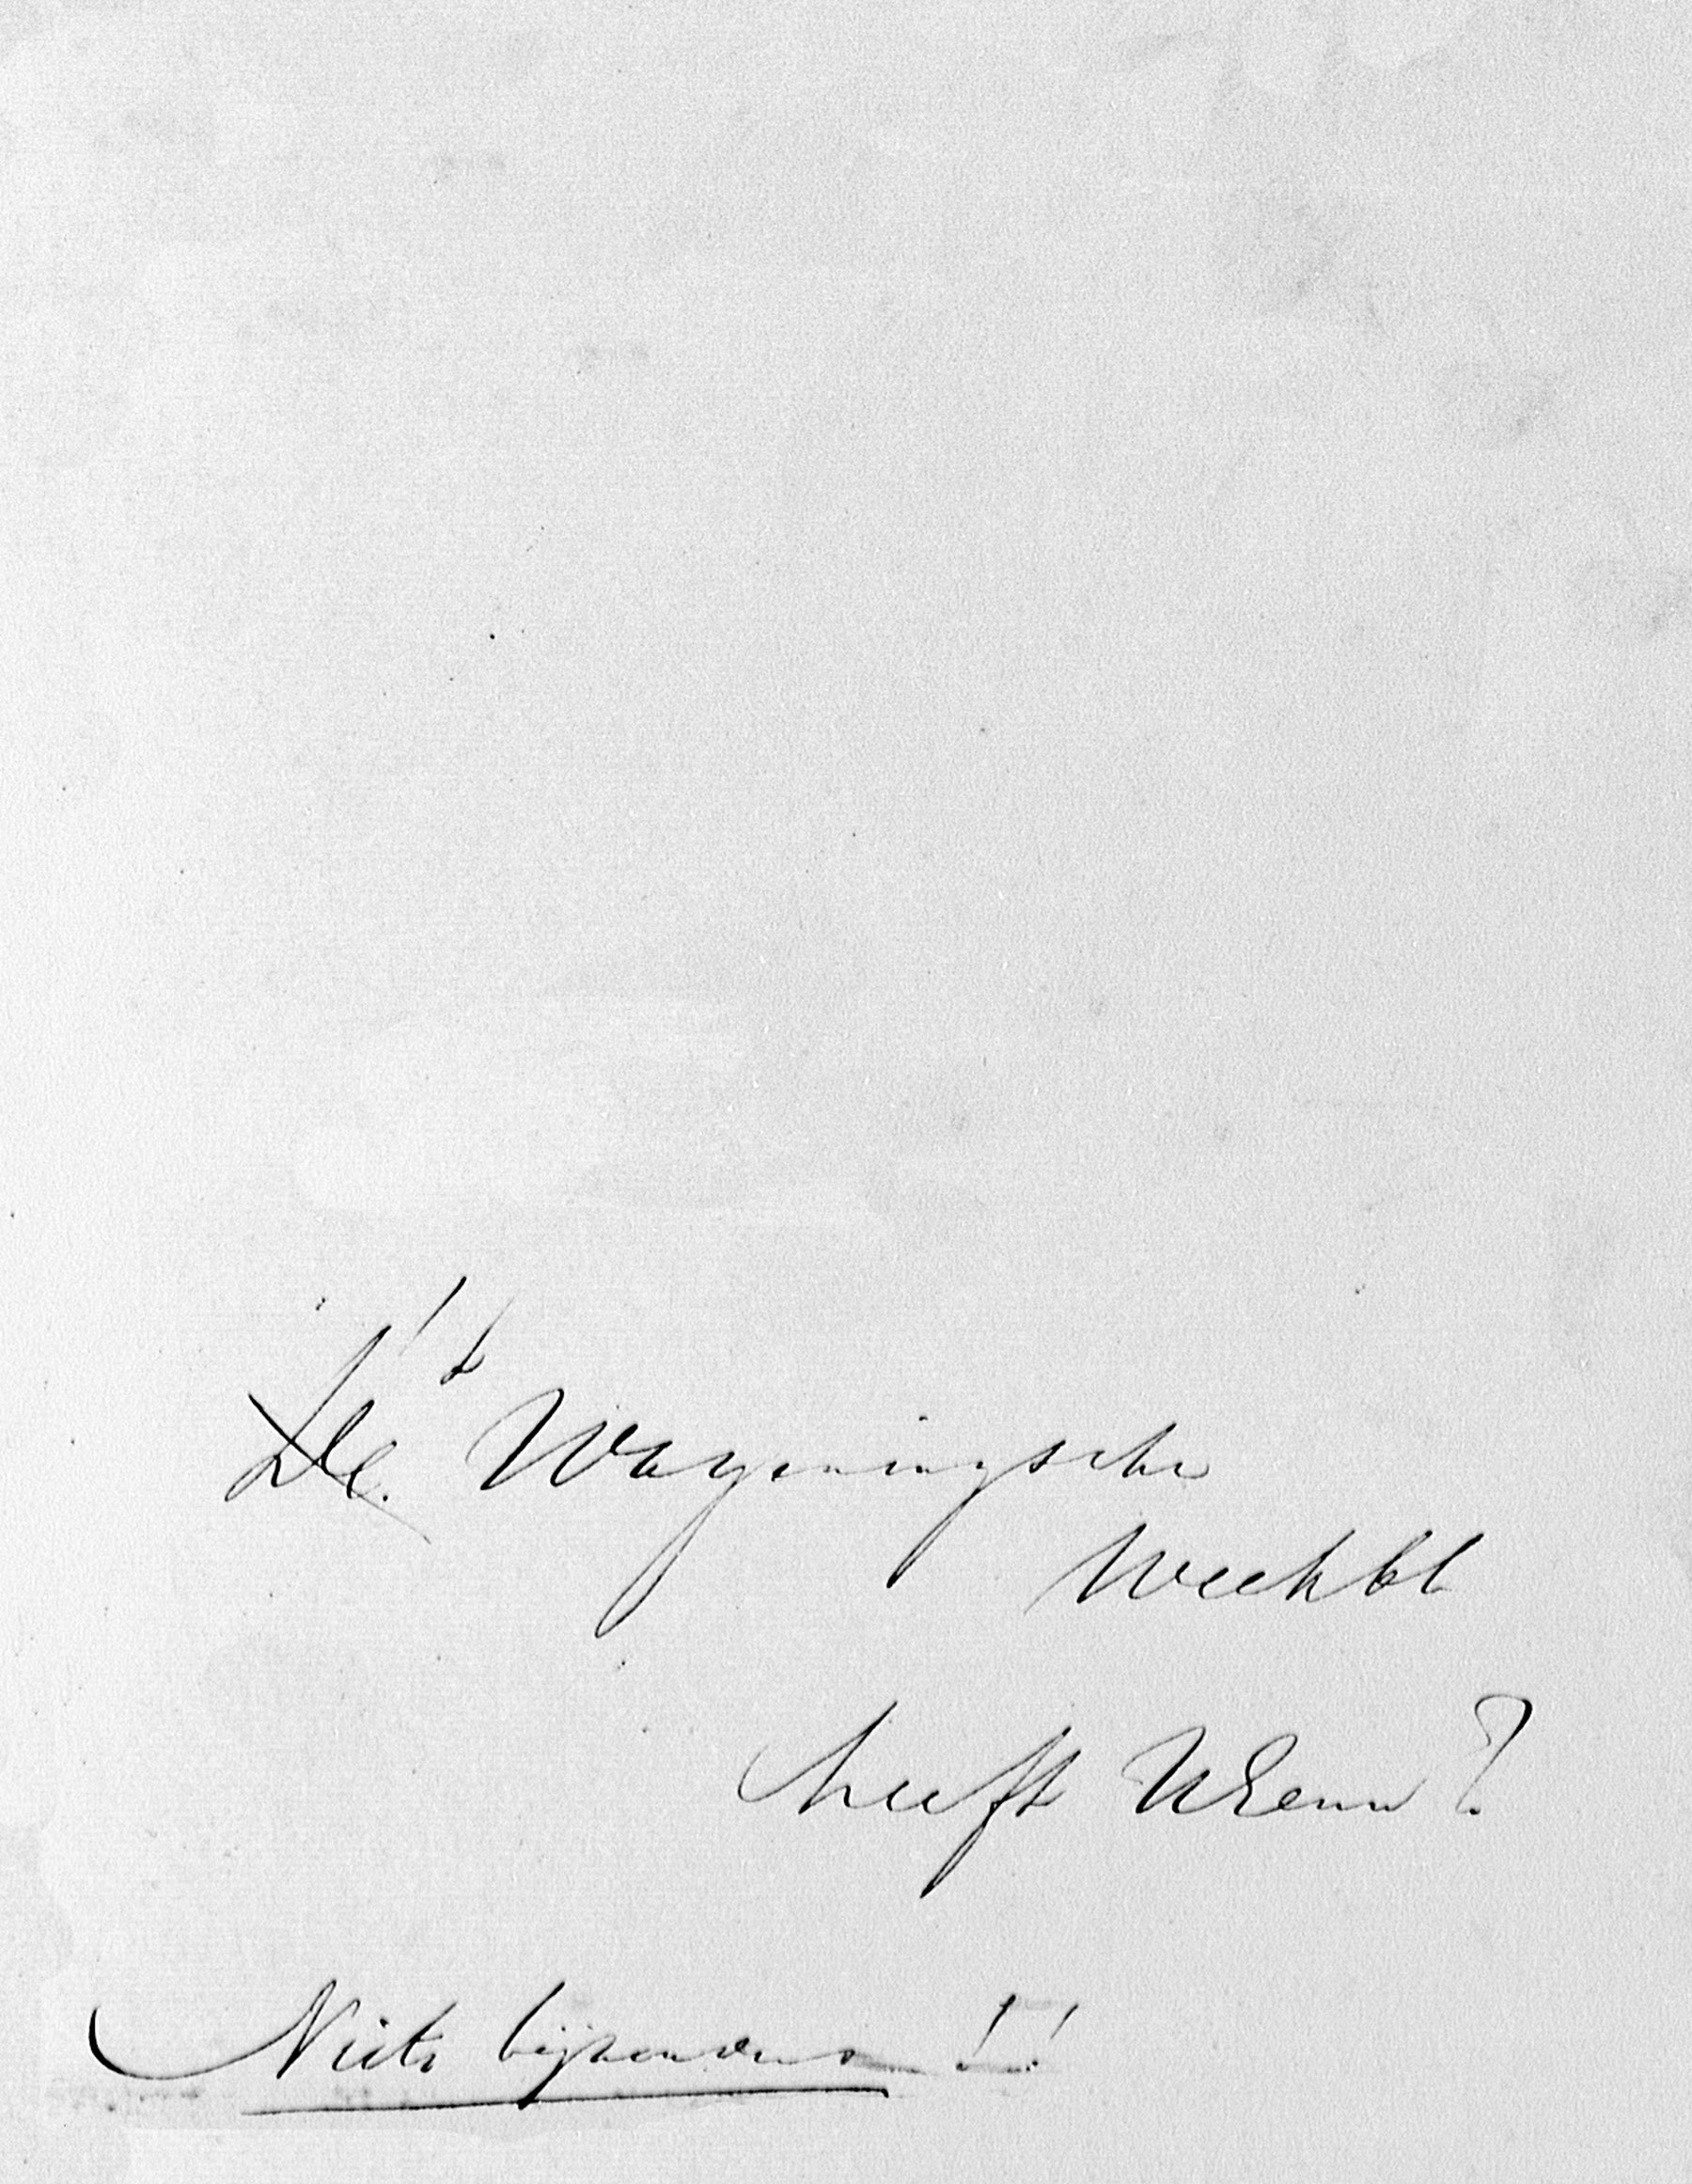 't Wageningsche
Weekbl
heeft UEenw?
Niets bijzonders!!